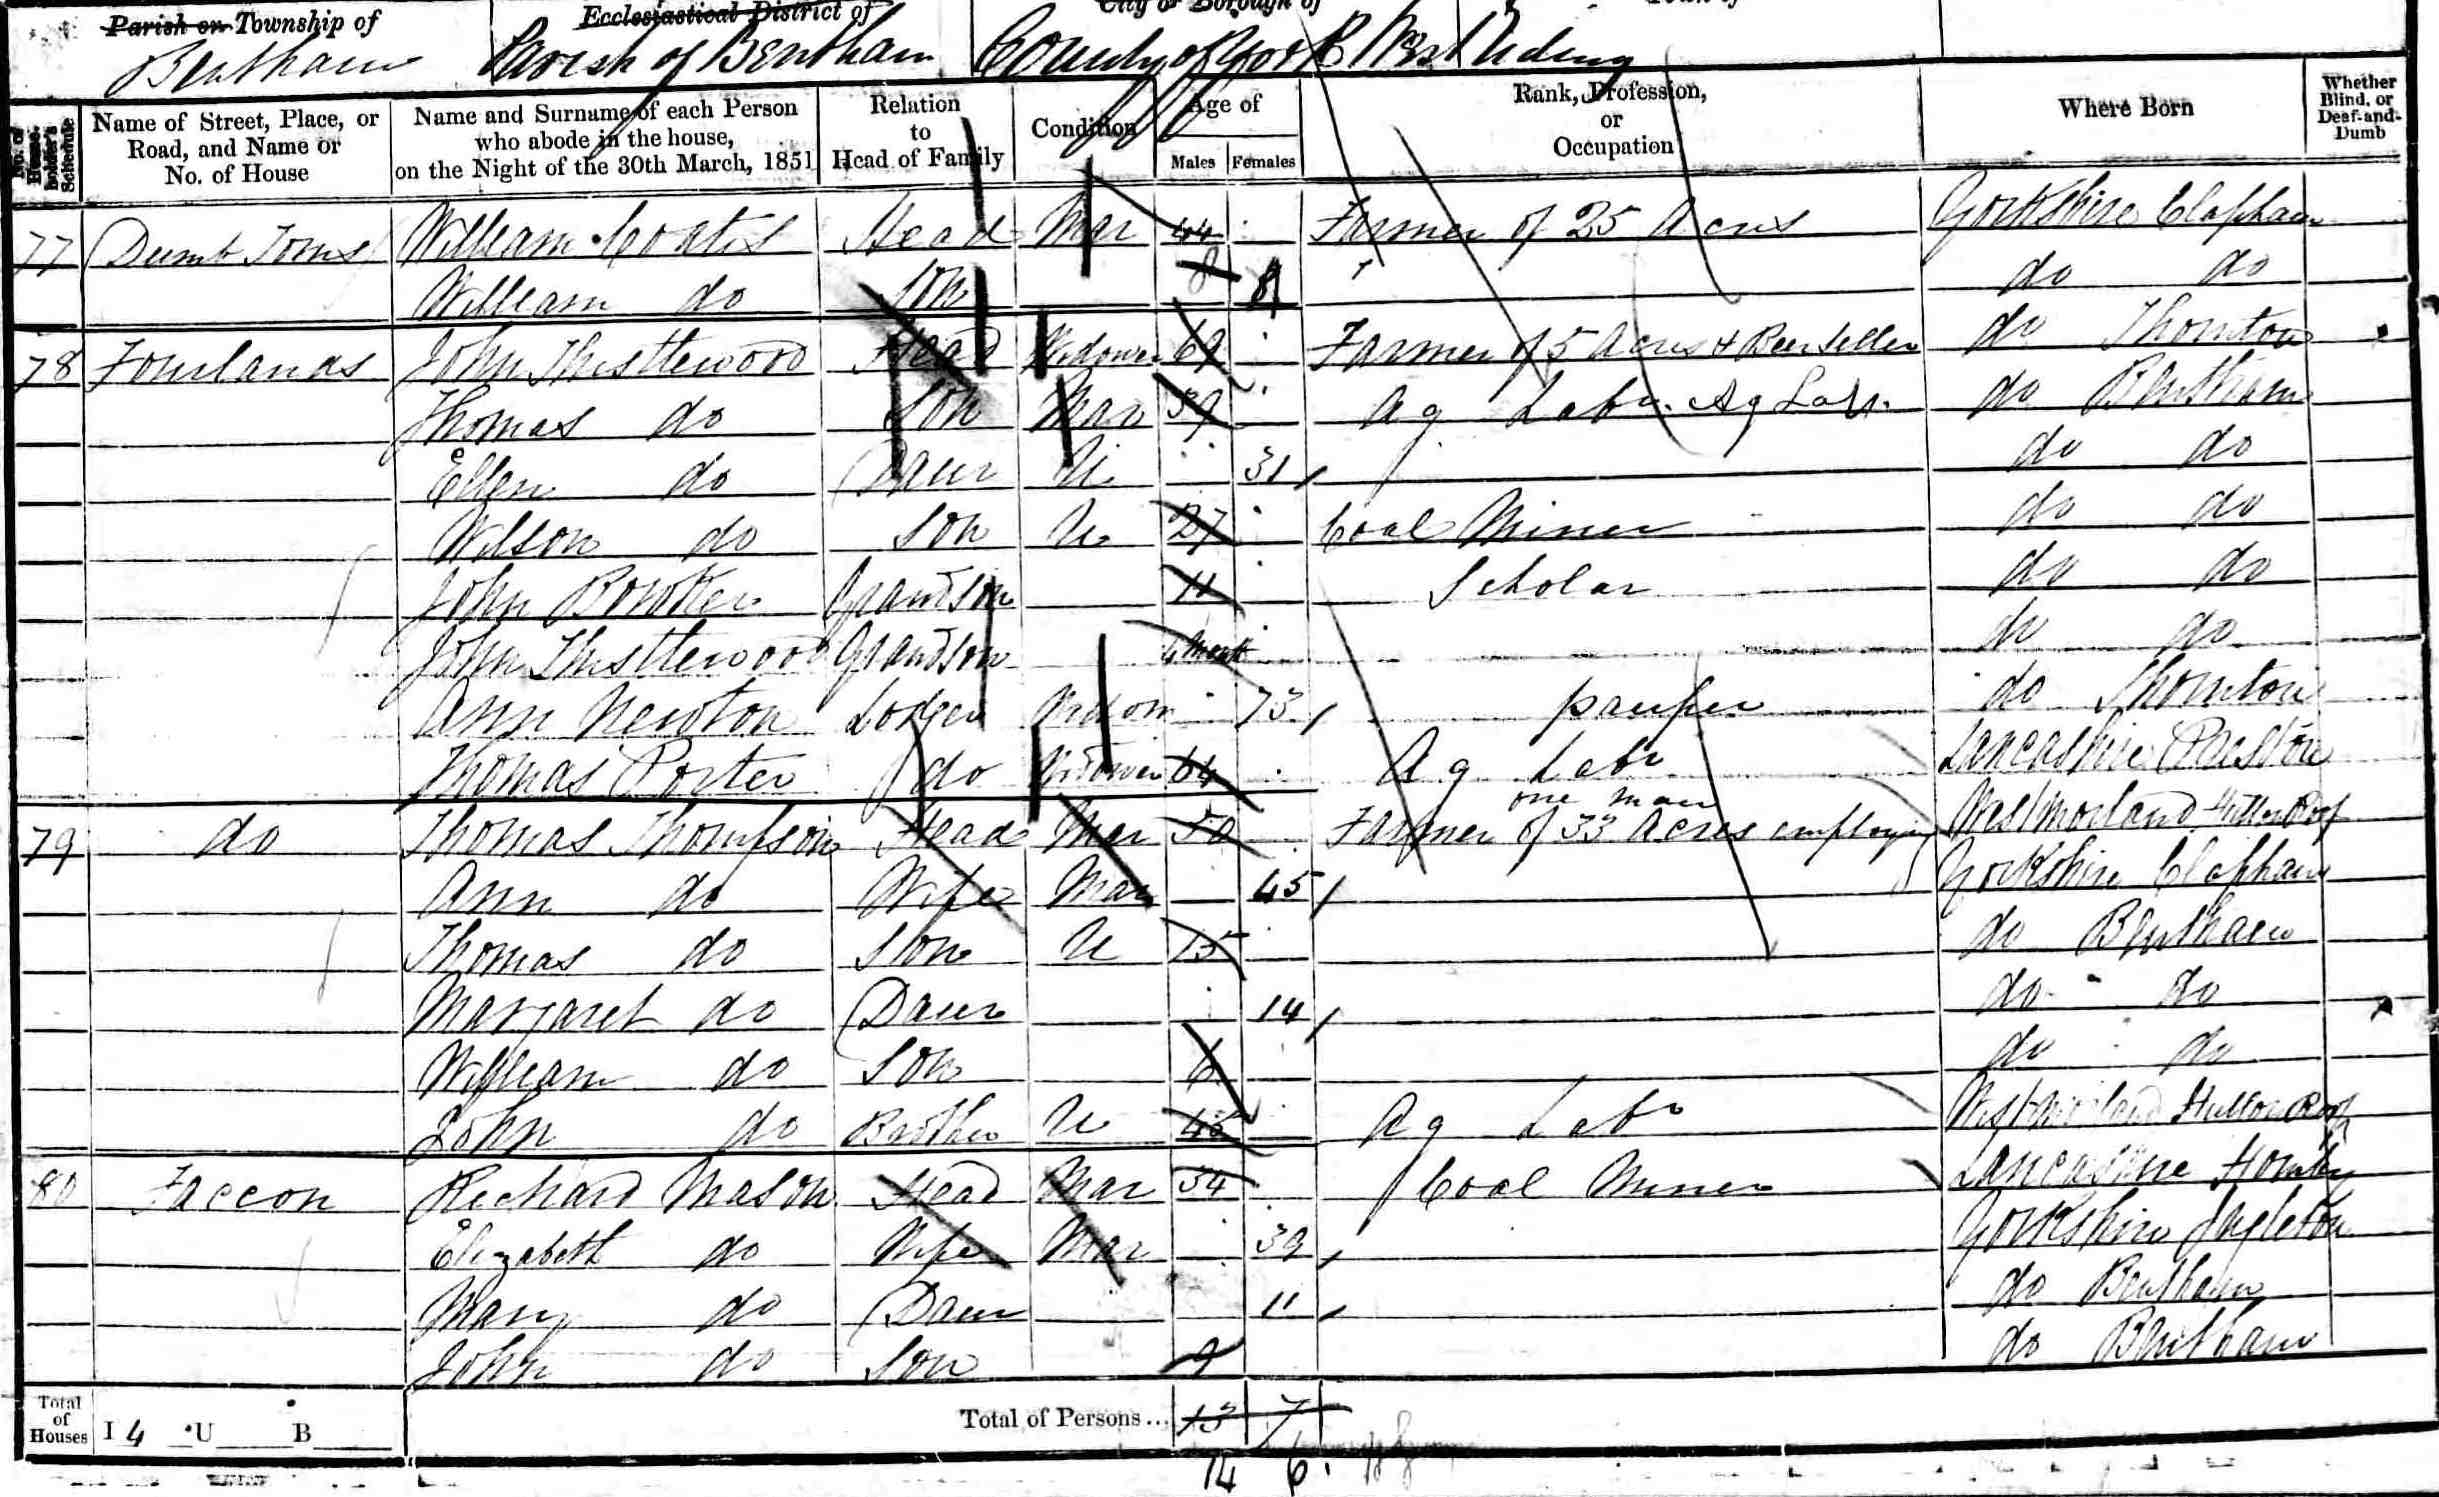 Parish or Township of Ecclesiastical District of City or Borough of Town of
Bentham Parish of Bentham County of York West Riding
No. of House-holder's Schedule
Name of Street, Place, or Road, and Name or No. of House
Name and Surname of each Person who abode in the house, on the Night of the 30th March, 1851
Relation to Head of Family
Condition
Age of
Males Females
Rank, Profession, or Occupation
Where Born
Whether Blind, or Deaf-and-Dumb
77 Dumb Toms William Coates Head Mar 44 Farmer of 25 Acres Yorkshire Clapham
William do Son 8 8 do do
78 Fourlands John Thistlewood Head Widower 69 Farmer of 5 Acres & Beer Seller do Thornton
Thomas do Son Mar 39 Ag Labr. Ag Labr. do Bentham
Ellen do Daur U 31 do do
Wilson do Son U 27 Coal Miner do do
John Bowker Grandson 11 Scholar do do
John Thistlewood Grandson 4 Month do do
Ann Newton Lodger Widow 73 pauper do Thornton
Thomas Porter do Widower 64 Ag Labr Lancashire Preston
79 do Thomas Thompson Head Mar 50 Farmer of 33 Acres employing one man Westmorland Hutton Roof
Ann do Wife Mar 45 Yorkshire Clapham
Thomas do Son U 15 do Bentham
Margaret do Daur 14 do do
William do Son 6 do do
John do Brother U 45 Ag Labr Westmorland Hutton Roof
80 Faccon Richard Mason Head Mar 34 Coal Miner Lancashire Hornby
Elizabeth do Wife Mar 39 Yorkshire Ingleton
Mary do Daur 11 do Bentham
John do Son 9 do Bentham
Total of Houses I 4 U B Total of Persons... 13 7
14 6